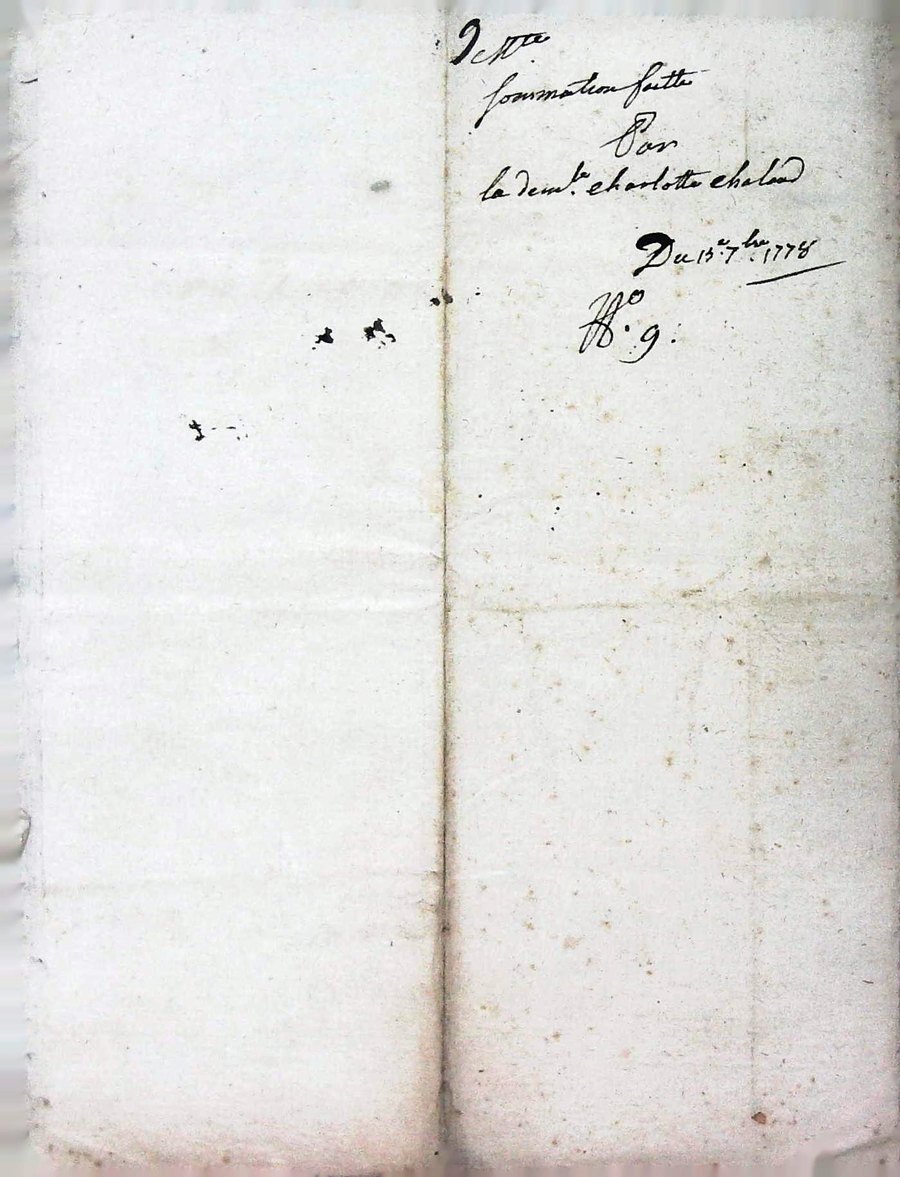 sommation faitte
Par
la dem.lle charlotte chalaud
Du 15.e 7bre. 1778
N.o 9.